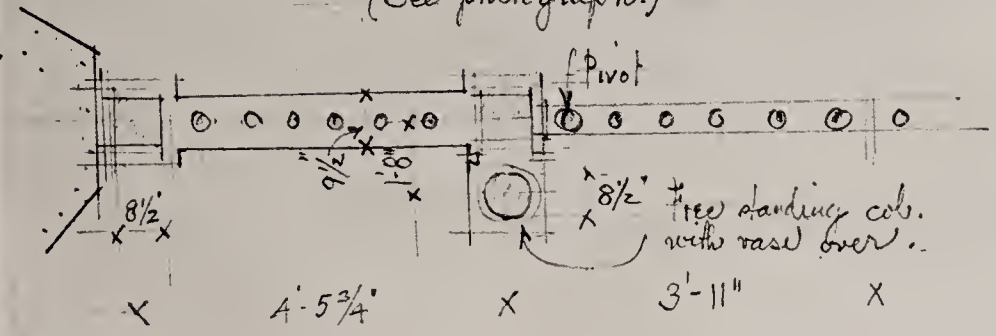 (See photographs.)
Pivot
9 1/2"
1'-8"
8 1/2"
8 1/2"
Free standing col.
with vase over.
4'-5 3/4"
3'-11"